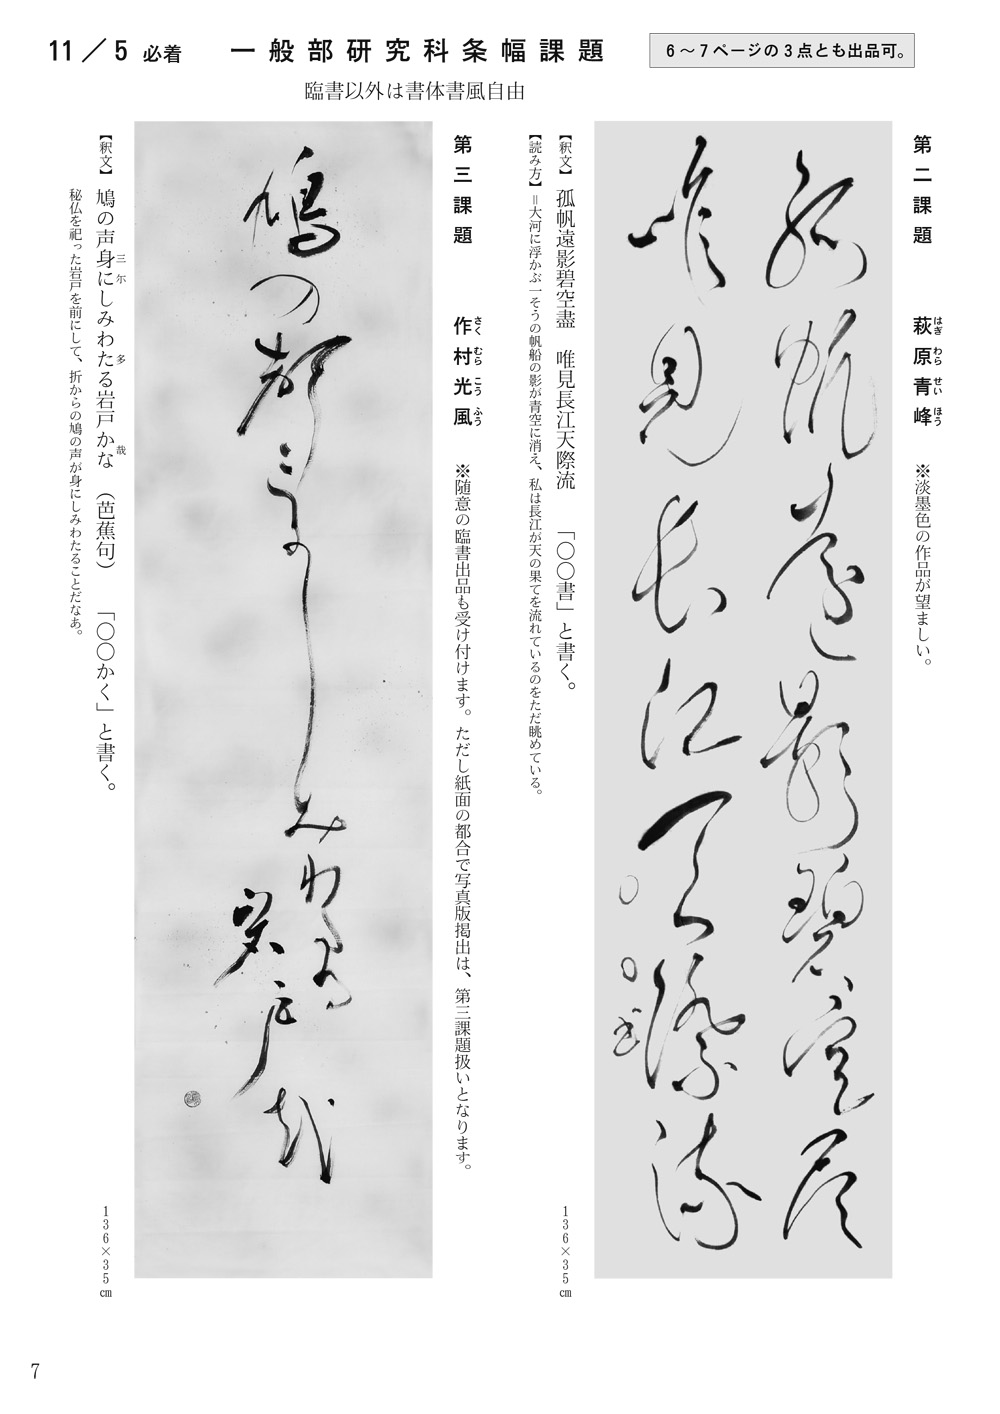 11／5 必着　一般部研究科条幅課題
6〜7ページの3点とも出品可。
臨書以外は書体書風自由
第二課題　萩原青峰　※淡墨色の作品が望ましい。
はぎ わら せい ほう
孤帆遠影碧空盡
唯見長江天際流
【釈文】孤帆遠影碧空盡　唯見長江天際流　「〇〇書」と書く。
【読み方】＝大河に浮かぶ一そうの帆船の影が青空に消え、私は長江が天の果てを流れているのをただ眺めている。
136×35㎝
第三課題　作村光風　※随意の臨書出品も受け付けます。ただし紙面の都合で写真版掲出は、第三課題扱いとなります。
さく むら こう ふう
鳩の声三尓しみわ多る
岩戸哉
【釈文】鳩の声身にしみわたる岩戸かな　（芭蕉句）　「〇〇かく」と書く。
三 尓 多 哉
秘仏を祀った岩戸を前にして、折からの鳩の声が身にしみわたることだなあ。
136×35㎝
7